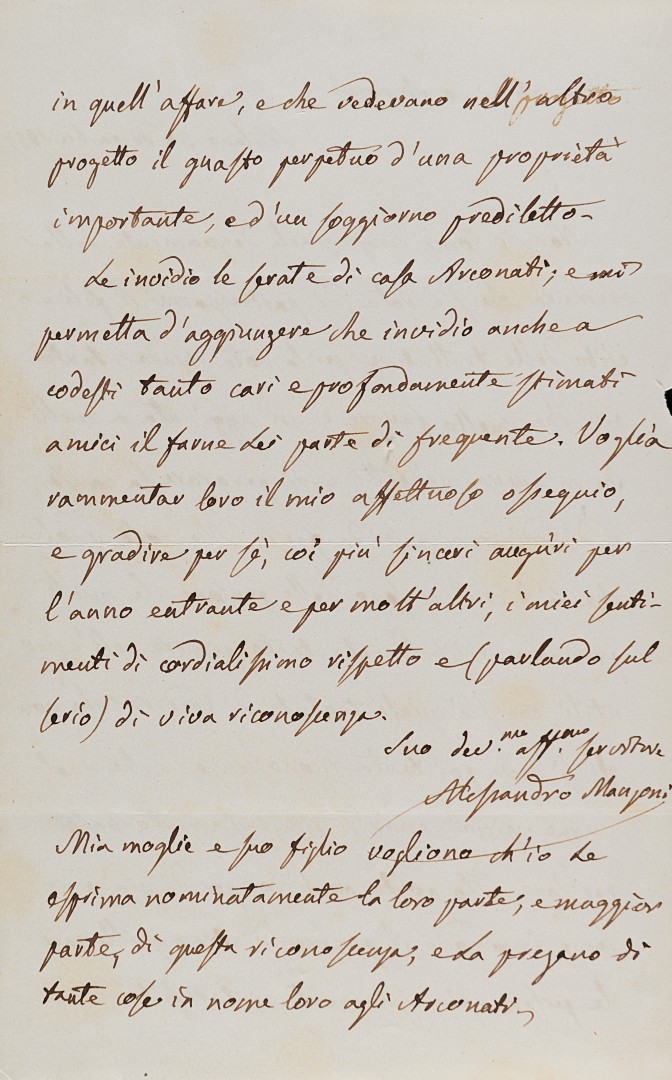 in quell'affare, e che vedevano nell'altro
progetto il guasto perpetuo d'una proprietà
importante, e d'un soggiorno prediletto.
Le invidio le serate di casa Arconati; e mi
permetta d'aggiungere che invidio anche a
codesti tanto cari e profondamente stimati
amici il farne Lei parte di frequente. Voglia
rammentar loro il mio affettuoso ossequio,
e gradire per sè, coi più sinceri augùri per
l'anno entrante e per molt'altri, i miei senti-
menti di cordialissimo rispetto e (parlando sul
serio) di viva riconoscenza.
Suo dev.mo aff.mo servitore
Alessandro Manzoni
Mia moglie e suo figlio vogliono ch'io Le
esprima nominatamente la loro parte, e maggior
parte, di questa riconoscenza; e La pregano di
tante cose in nome loro agli Arconati.